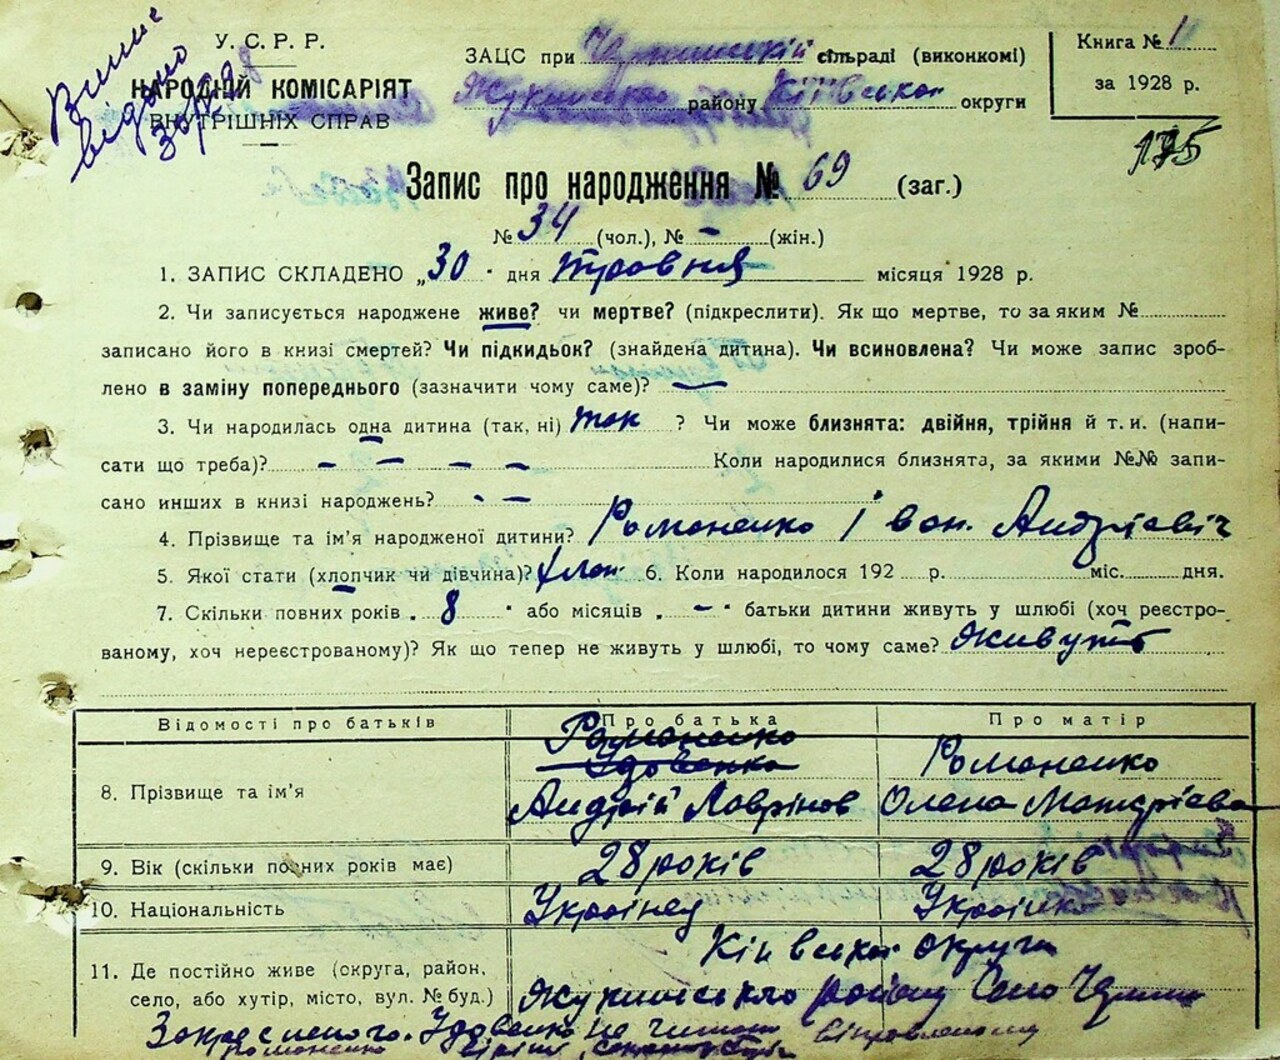 Випис
видано
У. С. Р. Р.
НАРОДНІЙ КОМІСАРІЯТ
ВНУТРІШНІХ СПРАВ
ЗАЦС при сільраді (виконкомі)
району Київської округи
Книга № 1
за 1928 р.
175
Запис про народження № 69 (заг.)
№ 34 (чол.), № – (жін.)
1. ЗАПИС СКЛАДЕНО „30" дня травня місяця 1928 р.
2. Чи записується народжене живе? чи мертве? (підкреслити). Як що мертве, то за яким №
записано його в книзі смертей? Чи підкидьок? (знайдена дитина). Чи всиновлена? Чи може запис зроб-
лено в заміну попереднього (зазначити чому саме)? —
3. Чи народилась одна дитина (так, ні) так ? Чи може близнята: двійня, трійня й т. и. (напи-
сати що треба)? – – – – Коли народилися близнята, за якими №№ запи-
сано инших в книзі народжень? - –
4. Прізвище та ім'я народженої дитини? Романенко Іван Андрієвіч
5. Якої стати (хлопчик чи дівчина)? хлоп. 6. Коли народилося 192 р. міс. дня.
7. Скільки повних років „ 8 " або місяців „ – " батьки дитини живуть у шлюбі (хоч реєстро-
ваному, хоч нереєстрованому)? Як що тепер не живуть у шлюбі, то чому саме? Живуть
Відомості про батьків Про батька Про матір
Романенко
Удовенко Романенко
8. Прізвище та ім'я Андрій Лаврінов Олена
9. Вік (скільки повних років має) 28 років 28 років
10. Національність Українец Українка
Київської округи
11. Де постійно живе (округа, район,
село, або хутір, місто, вул. № буд.) району Село
Удовенко не читати
Романенко